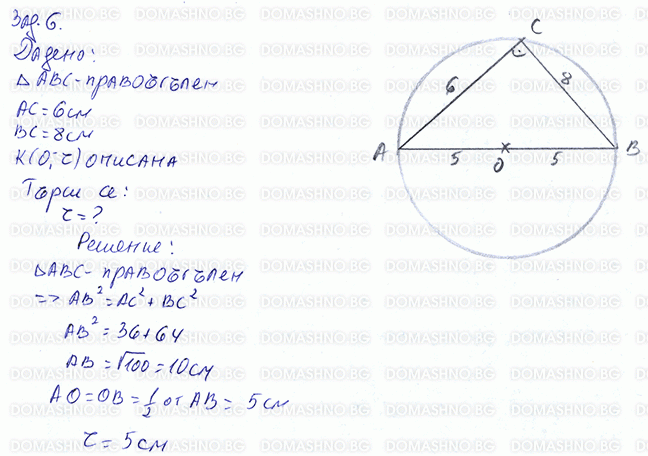 Зад. 6.
Дадено:
△ABC - правоъгълен
AC = 6 см
BC = 8 см
K(O; r) описана
Търси се:
r = ?
Решение:
△ABC - правоъгълен
=> AB² = AC² + BC²
AB² = 36 + 64
AB = √100 = 10 см
AO = OB = 1/2 от AB = 5 см
r = 5 см
C
6
8
A
B
5
O
5
DOMASHNO.BG